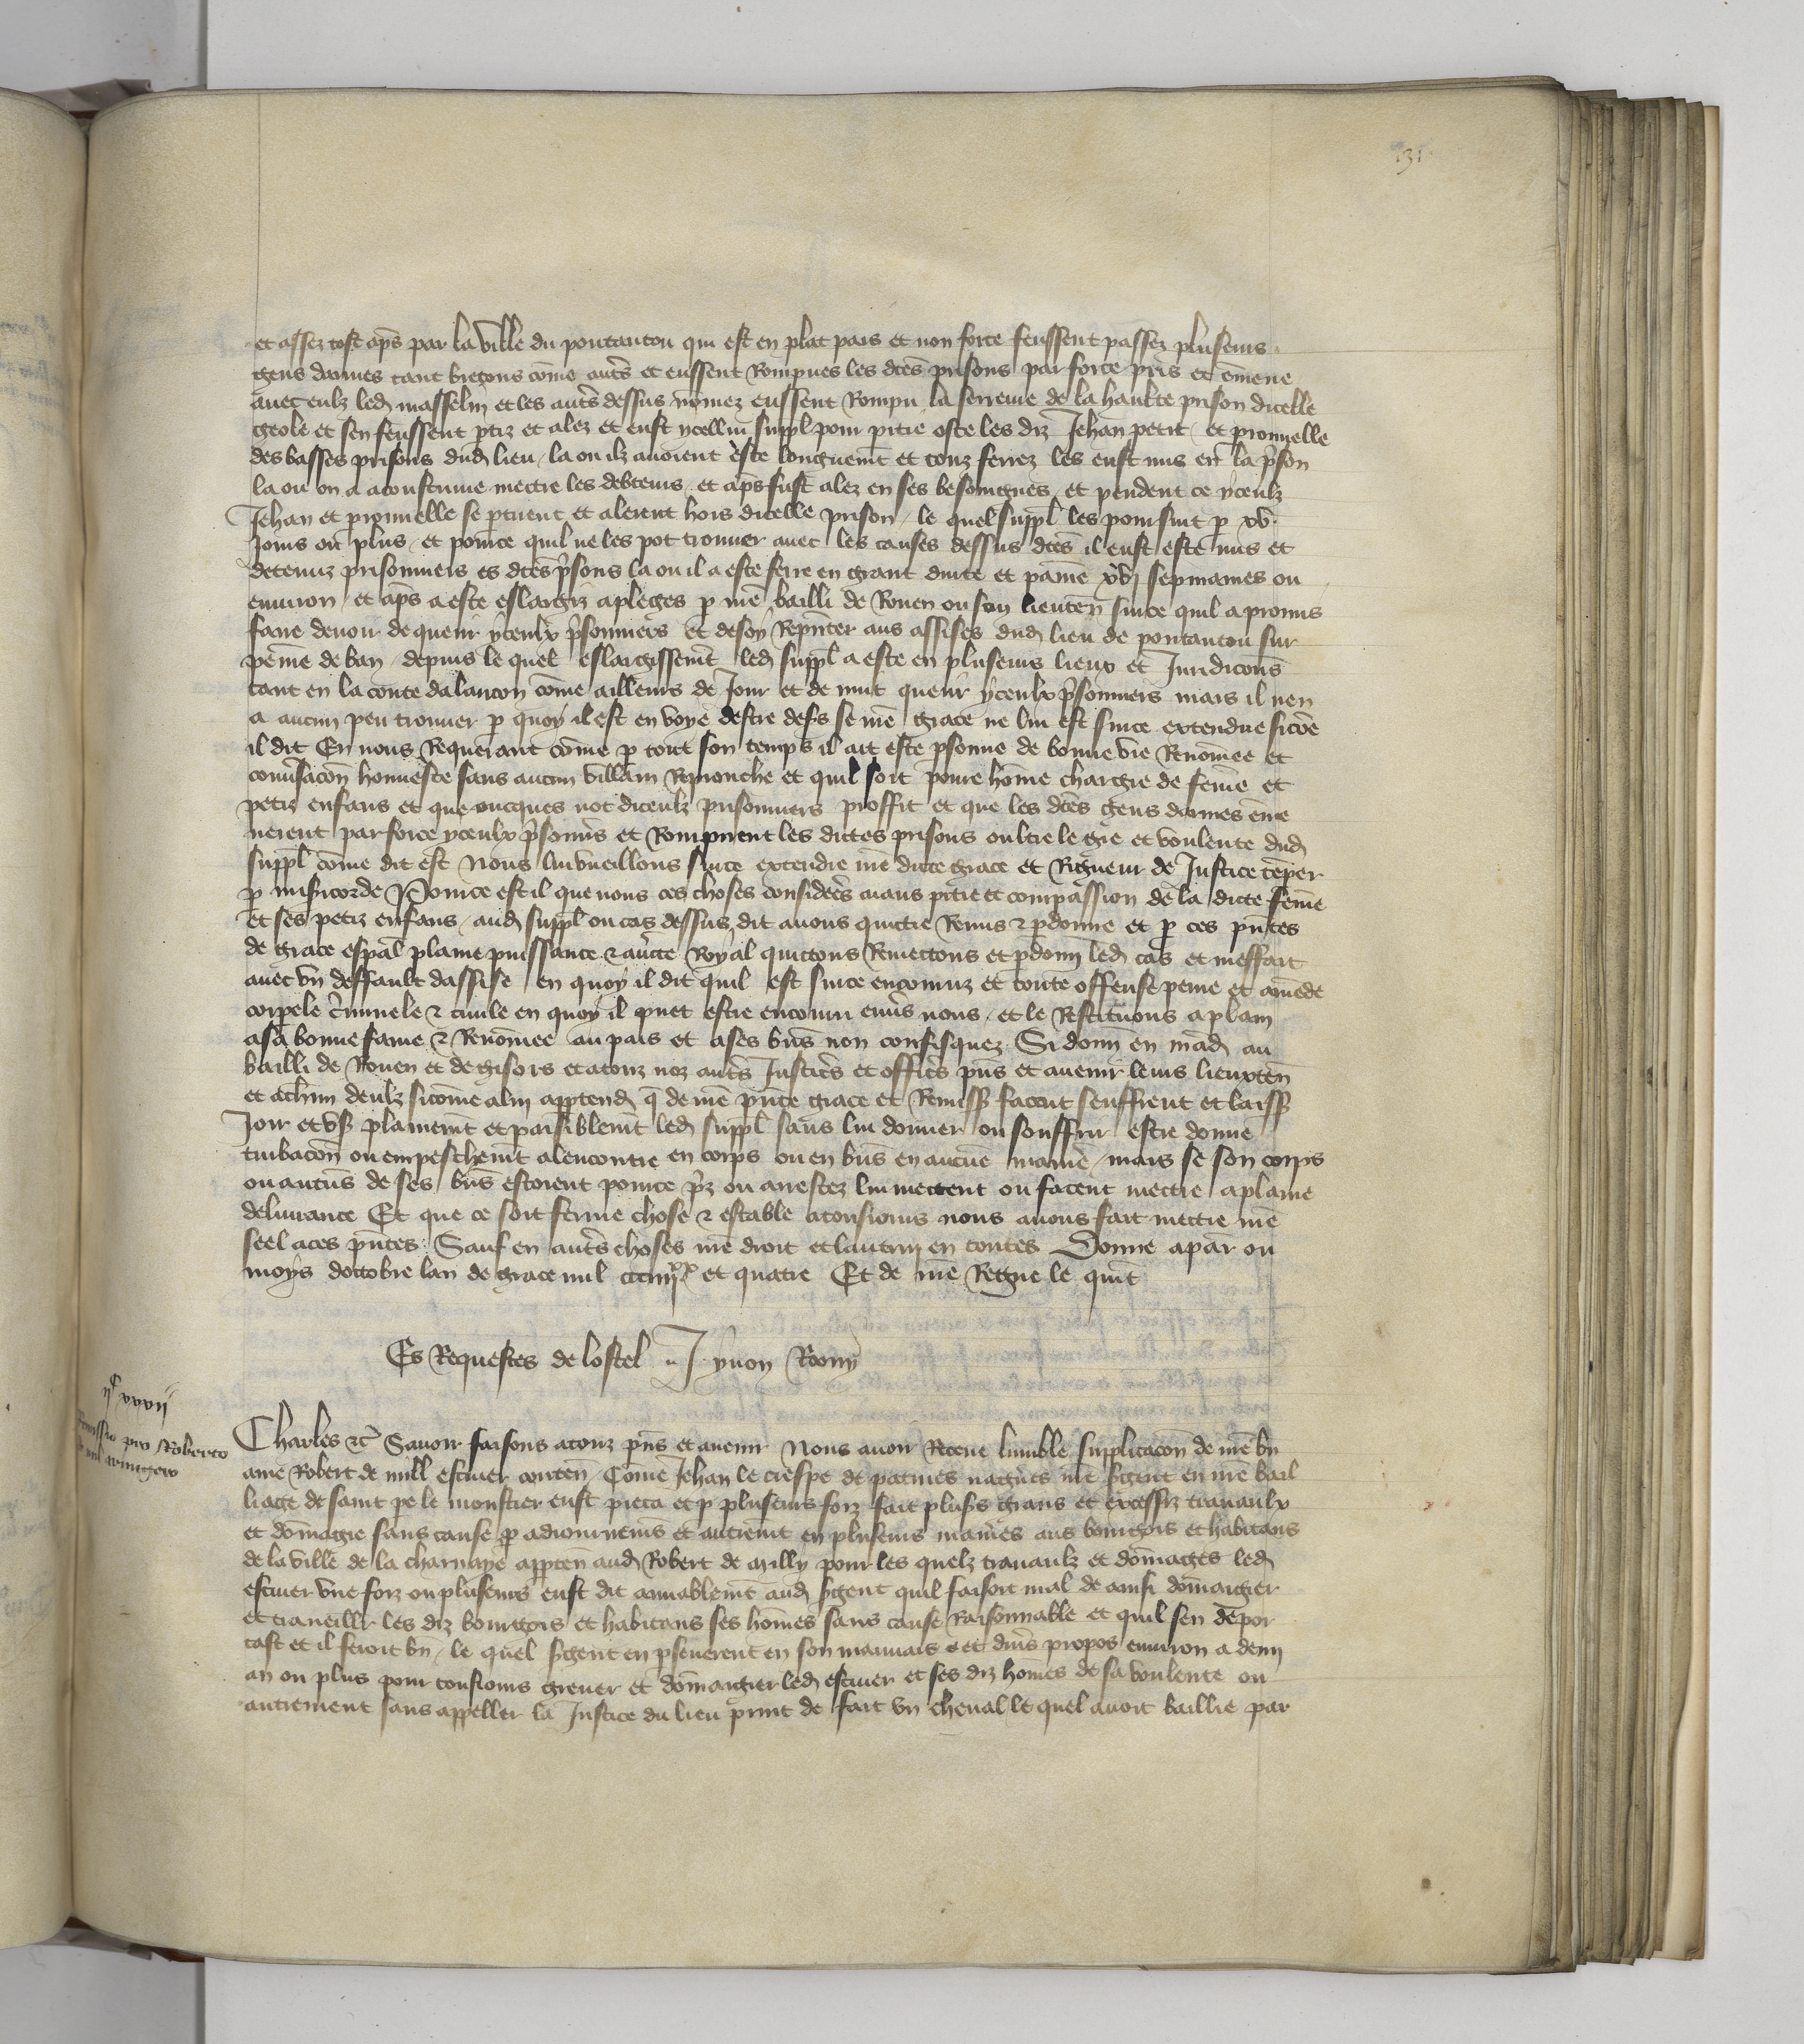 131
et assez tost apͣs par la ville du pontautou qui est en plat pais et non forte feussent passez plusieurs
gens darmes tant bretons cōme autͣs et eussent Rompues les dc̄es prisons par force pris et ēmene
avec eulz led masselin et les autͣs dessus nōmez eussent Rompu la serreure de la haulte prison dicelle
geole et sen feussent ptiz et alez et eust ycellui suppl pour pitie oste les diz Jehan petit et pronnelle
des basses prisons dud lieu la ou ilz avoient este longuemt et touz ferrez les eust mis en la pͥson
la ou on a acoustume mectre les debteurs et apͣs fust alez en ses besoingnes et pendent ce yceulz
Jehan et pronnelle se ptirent et alerent hors dicelle prison le quel suppl les poursuit p xv
Jours ou plus et pource quil ne les pot trouver avec les causes dessus dc̄es il eust este mis et
detenuz prisonniers es dc̄es pͥsons la ou il a este ferre en grant durte et par mē xvj sepmaines ou
environ et apͣs a este eslargiz a pleges p nrē bailli de Rouen ou son lieutēn surce quil a promis
faire devoir de querir yceulx pͥsonniers et de soy Rep̄nter aus assises dud lieu de pontautou sur
peine de ban depuis le quel eslargissemt led suppl a este en plusieurs lieux et Juridicōns
tant en la conte dalancon cōme ailleurs de Jour et de nuit querir yceulx pͥsonniers mais il nen
a aucun peu trouver p quoy il est en voye destre desͣs se nrē grace ne lui est surce extendue sicōe
il dit En nous Requerant cōme p tout son temps il ait este psonne de bonne vie Renōmee et
conv̄sacōn honneste sans aucun villain Reprouche et quil soit povre hōme chargie de fēme et
petiz enfans et que oncques not diceulz prisonniers proffit et que les dc̄es gens darmes ēme
nerent par force yceulx pͥsonnͥs et Rompirent les dictes prisons oultre le gre et voulente dud
suppl cōme dit est Nous lui vueillons surce extendre nrē dicte grace et Rigueur de Justice tēper
p misͥcorde Pource est il que nous ces choses considerͣs aians pitie et compassion de la dicte fēme
et ses petiz enfans aud suppl ou cas dessus dit avons quictie Remis & pdonne et p ces pn̄tes
de grace esp̄al plaine puissance & aucͭte Royal quictons Remectons et pdonn led cas et meffait
avec un deffault dassise en quoy il dit quil est surce encouruz et toute offense peine et amēde
corpele cͥminele & civile en quoy il puet estre encouru env̄s nous et le Restituons a plain
a sa bonne fame & Renōmee au pais et a ses biēs non confisquez Si donn en mād au
bailli de Rouen et de gisors et a touz noz autͣs Justicͣs et officͣs pn̄s et avenir leurs lieuxtēn
et a ch̄un deulz sicōme a lui apptend q̄ de nrē pn̄te grace et Remiss facent seuffrent et laiss
Jour et us plainemt et paisiblemt led suppl sans lui donner ou souffrir estre donne
turbacōn ou empeschemt alencontre en corps ou en biēs en aucūe maniē mais se son corps
ou aucūs de ses biēs estoient pource pͥz ou arrestez lui mectent ou facent mectre a plaine
delivrance Et que ce soit ferme chose & estable a tousiours nous avons fait mectre nrē
seel a ces pn̄tes Sauf en autͣs choses nrē droit et lautruy en toutes Donne a par ou
moys doctobre lan de grace mil ccciiijxx et quatre Et de nrē Regne le quīt
Es Requestes de lostel J yvon Rony
ijc xxxij
Remissio pro Roberto
de mil armigero
Charles &c Savoir faisons a touz pn̄s et avenir Nous avoir Receue lumble supplicacōn de nrē biē
ame Robert de mill escuier contēn Cōme Jehan le crespe de patmes nagͣes nrē sͥgent en nrē bail
liage de saint pe le monstier eust pieca et p plusieurs foiz fait plusͣs grans et excessiz travaulx
et dōmage sans cause p adiournemͣs et autremt en plusieurs maniͤes aus bourgois et habitans
de la ville de la charnaye apptēn aud Robert de milly pour les quelz travaulz et dōmages led
escuier une foiz ou plusieurs eust dit amiablemt aud sͥgent quil faisoit mal de ainsi dōmaigier
et traveillr les diz bourgois et habitans ses hōmes sans cause Raisonnable et quil sen depor
tast et il feroit biē le quel sͥgent en pseverent en son mauvais et divͥs propos environ a demi
an ou plus pour tousiours grever et dōmaigier led escuier et ses diz hōmes de sa voulente ou
autrement sans appeller la Justice du lieu print de fait un cheval le quel avoit baillie par